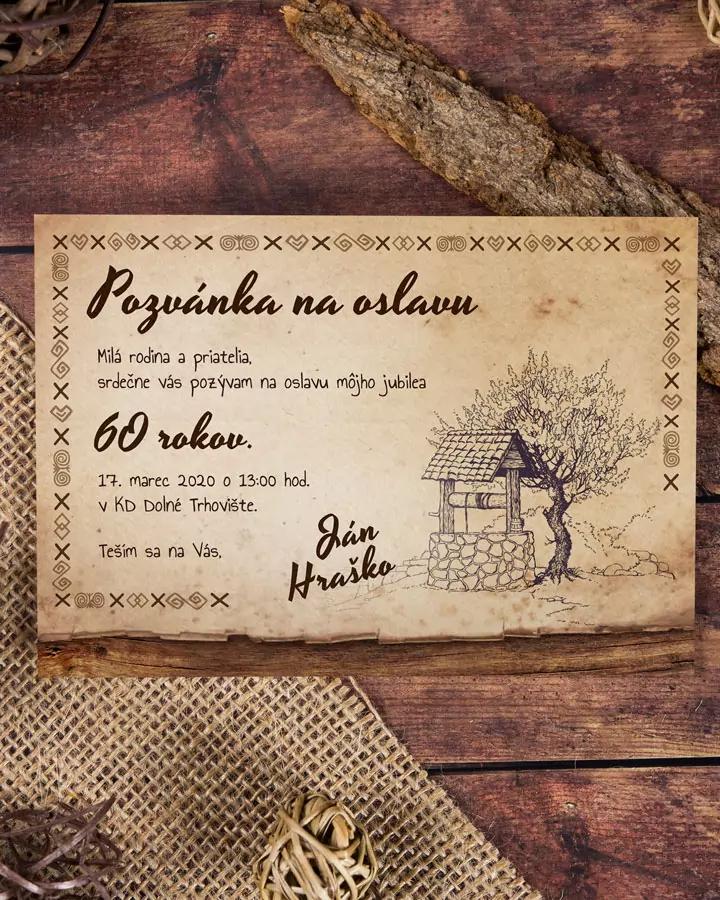 Pozvánka na oslavu
Milá rodina a priatelia,
srdečne vás pozývam na oslavu môjho jubilea
60 rokov.
17. marec 2020 o 13:00 hod.
v KD Dolné Trhovište.
Teším sa na Vás,
Ján
Hraško